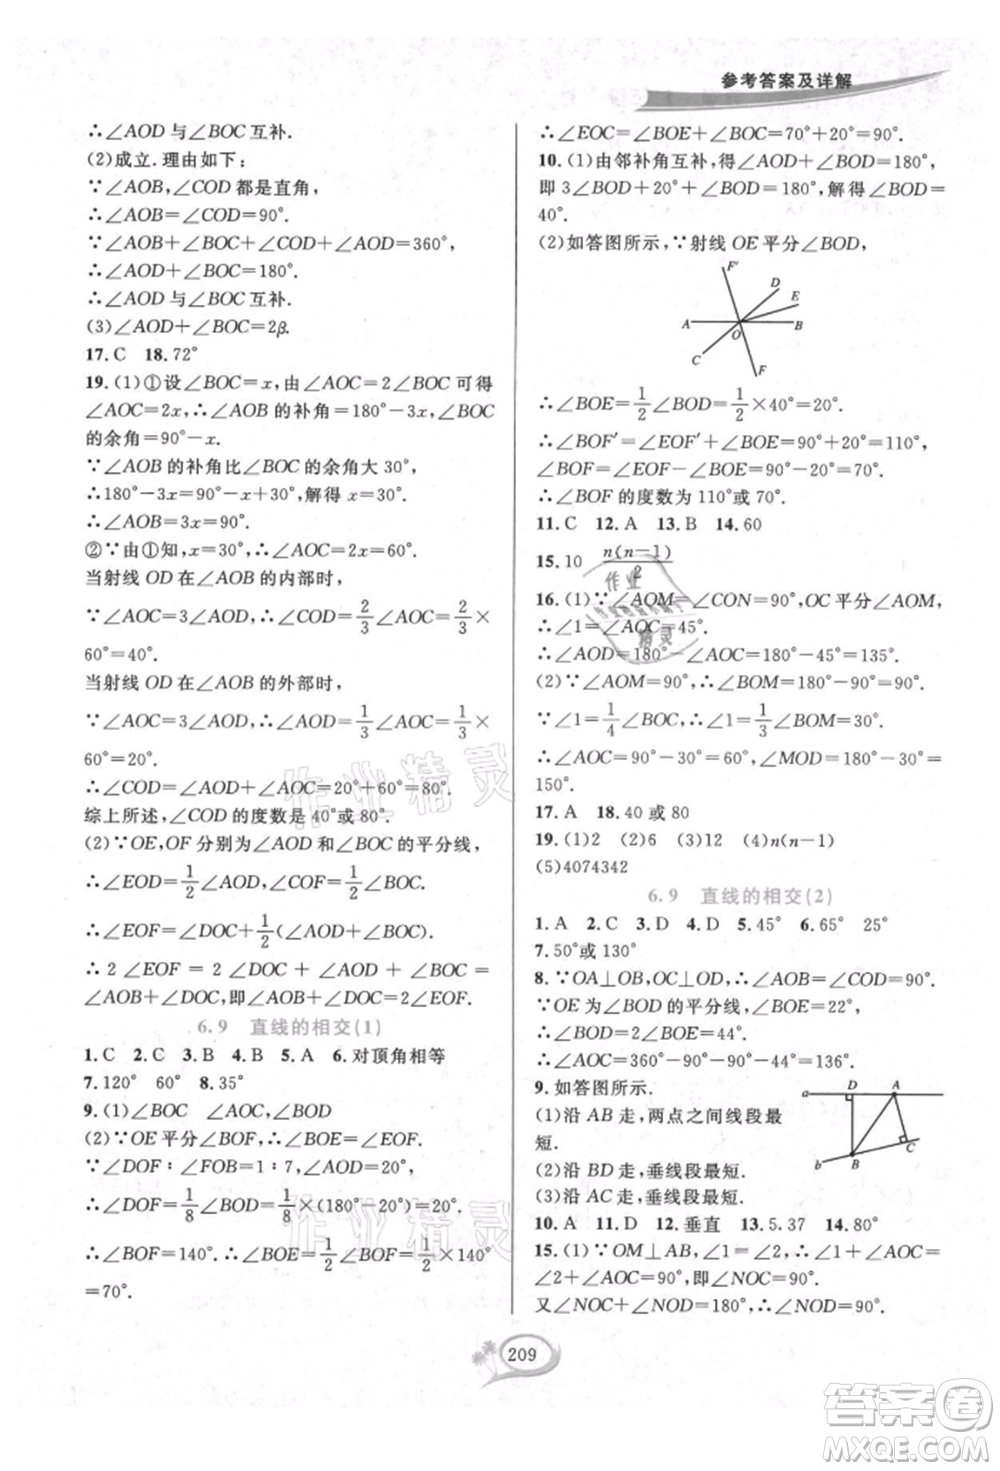 参考答案及详解
∴∠AOD与∠BOC互补.
(2)成立.理由如下:
∵∠AOB,∠COD都是直角,
∴∠AOB=∠COD=90°.
∵∠AOB+∠BOC+∠COD+∠AOD=360°,
∴∠AOD+∠BOC=180°.
∴∠AOD与∠BOC互补.
(3)∠AOD+∠BOC=2β.
17.C 18.72°
19.(1)①设∠BOC=x,由∠AOC=2∠BOC可得
∠AOC=2x,∴∠AOB的补角=180°-3x,∠BOC
的余角=90°-x.
∵∠AOB的补角比∠BOC的余角大30°,
∴180°-3x=90°-x+30°,解得x=30°.
∴∠AOB=3x=90°.
②∵由①知,x=30°,∴∠AOC=2x=60°.
当射线OD在∠AOB的内部时,
∵∠AOC=3∠AOD,∴∠COD=2/3∠AOC=2/3×
60°=40°.
当射线OD在∠AOB的外部时,
∵∠AOC=3∠AOD,∴∠AOD=1/3∠AOC=1/3×
60°=20°.
∴∠COD=∠AOD+∠AOC=20°+60°=80°.
综上所述,∠COD的度数是40°或80°.
(2)∵OE,OF分别为∠AOD和∠BOC的平分线,
∴∠EOD=1/2∠AOD,∠COF=1/2∠BOC.
∴∠EOF=∠DOC+1/2(∠AOD+∠BOC).
∴2∠EOF=2∠DOC+∠AOD+∠BOC=
∠AOB+∠DOC,即∠AOB+∠DOC=2∠EOF.
6.9 直线的相交(1)
1.C 2.C 3.B 4.B 5.A 6.对顶角相等
7.120° 60° 8.35°
9.(1)∠BOC ∠AOC,∠BOD
(2)∵OE平分∠BOF,∴∠BOE=∠EOF.
∵∠DOF∶∠BOF=1∶7,∠AOC=20°,
∴∠DOF=1/8∠COB=1/8×(180°-20°)=20°.
∴∠BOF=140°.∴∠BOE=1/2∠BOF=1/2×140°
=70°.
∴∠EOC=∠BOE+∠BOC=70°+20°=90°.
10.(1)由邻补角互补,得∠AOD+∠BOD=180°,
即3∠BOD+20°+∠BOD=180°,解得∠BOD=
40°.
(2)如答图所示,∵射线OE平分∠BOD,
F′
D
E
A
O
B
C
F
∴∠BOE=1/2∠BOD=1/2×40°=20°.
∴∠BOF′=∠EOF′+∠BOE=90°+20°=110°,
∠BOF=∠EOF-∠BOE=90°-20°=70°.
∴∠BOF的度数为110°或70°.
11.C 12.A 13.B 14.60
15.10 n(n-1)/2
16.(1)∵∠AOM=∠CON=90°,OC平分∠AOM,
∴∠1=∠AOC=45°.
∴∠AOD=180°-∠AOC=180°-45°=135°.
(2)∵∠AOM=90°,∴∠BOM=180°-90°=90°.
∵∠1=1/4∠BOC,∴∠1=1/3∠BOM=30°.
∴∠AOC=90°-30°=60°,∠MOD=180°-30°=
150°.
17.A 18.40或80
19.(1)2 (2)6 (3)12 (4)n(n-1)
(5)4074342
6.9 直线的相交(2)
1.A 2.C 3.D 4.D 5.45° 6.65° 25°
7.50°或130°
8.∵OA⊥OB,OC⊥OD,∴∠AOB=∠COD=90°.
∵OE为∠BOD的平分线,∠BOE=22°,
∴∠BOD=2∠BOE=44°.
∴∠AOC=360°-90°-90°-44°=136°.
9.如答图所示.
(1)沿AB走,两点之间线段最
短.
(2)沿BD走,垂线段最短.
(3)沿AC走,垂线段最短.
a
D
A
b
B
C
10.A 11.D 12.垂直 13.5.37 14.80°
15.(1)∵OM⊥AB,∴∠AOM=90°.∵∠1=∠2,
∴∠2+∠AOC=90°,即∠NOC=90°.
又∵∠NOC+∠NOD=180°,∴∠NOD=90°.
209
作业精灵
作业精灵
作业
精灵
答案圈
MXQE.COM